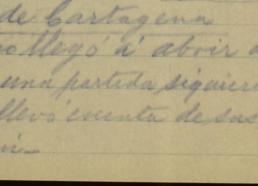 de Cartagena
no llegó á abrir
una partida siquiera
llevó cuenta de sus